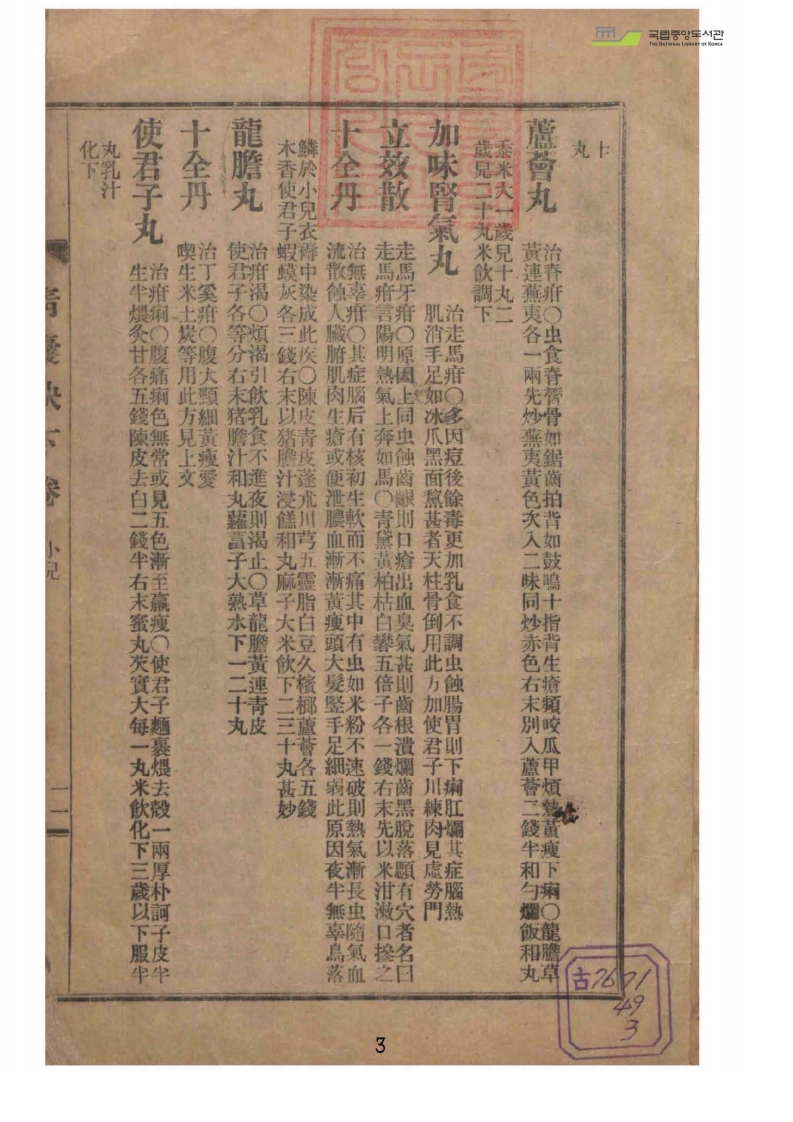 국립중앙도서관
THE NATIONAL LIBRARY OF KOREA
十
丸
蘆薈丸
治脊疳○虫食脊膂骨如鋸齒拍背如鼓鳴十指背生瘡頻咬瓜甲煩熱黃瘦下痢○龍膽草
黃連蕪荑各一兩先炒蕪荑黃色次入二味同炒赤色右末別入蘆薈二錢半和勻爛飯和丸
黍米大一歲兒十丸二
歲兒二十丸米飮調下
加味腎氣丸
治走馬疳○多因痘後餘毒更加乳食不調虫蝕腸胃則下痢肛爛其症腦熱
肌消手足如冰爪黑面黧甚者天柱骨倒用此方加使君子川練肉見虛勞門
立效散
走馬牙疳○原因上同虫蝕齒齦則口瘡出血臭氣甚則齒根潰爛齒黑脫落顋有穴者名曰
走馬疳言陽明熱氣上奔如馬○靑黛黃柏枯白礬五倍子各一錢右末先以米泔漱口摻之
十全丹
治無辜疳○其症腦后有核初生軟而不痛其中有虫如米粉不速破則熱氣漸長虫隨氣血
流散蝕人臟腑肌肉生瘡或便泄膿血漸漸黃瘦頭大髮竪手足細弱此原因夜半無辜鳥落
鱗於小兒衣褥中染成此疾○陳皮靑皮蓬朮川芎五靈脂白豆久檳榔蘆薈各五錢
木香使君子蝦蟆灰各三錢右末以猪膽汁浸餻和丸麻子大米飮下二三十丸甚妙
龍膽丸
治疳渴○煩渴引飮乳食不進夜則渴止○草龍膽黃連靑皮
使君子各等分右末猪膽汁和丸蘿葍子大熟水下一二十丸
十全丹
治丁奚疳○腹大頸細黃瘦愛
喫生米土炭等用此方見上文
使君子丸
治疳痢○腹痛痢色無常或見五色漸至羸瘦○使君子麵裹煨去殼一兩厚朴訶子皮半
生半煨灸甘各五錢陳皮去白二錢半右末蜜丸芡實大每一丸米飮化下三歲以下服半
丸乳汁
化下
靑囊決下卷 小兒
二
古7671
49
3
3